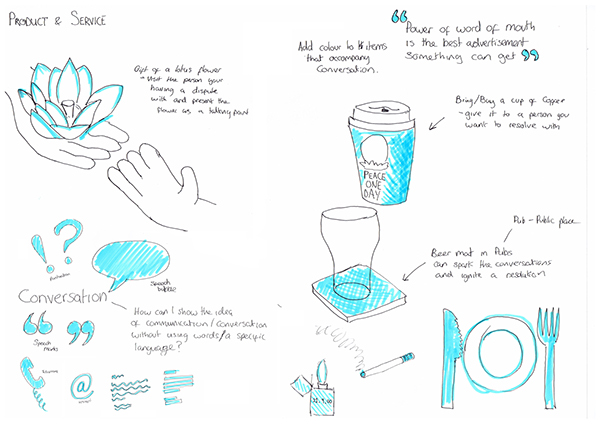 PRODUCT & SERVICE
Gift of a lotus flower
- Visit the person your
having a dispute
with and present the
flower as a talking point
Add colour to items
that accompany
Conversation.
Power of word of mouth
is the best advertisement
Something can get
Bring/Buy a cup of Copper
- give it to a person you
want to resolve with
PEACE
ONE
DAY
Pub - Public place
Beer mat in Pubs
can spark the conversations
and ignite a resolution
Speech
bubble
Conversation
How can I show the idea
of communication/conversation
without using words/a specific
language?
Speech
marks
@